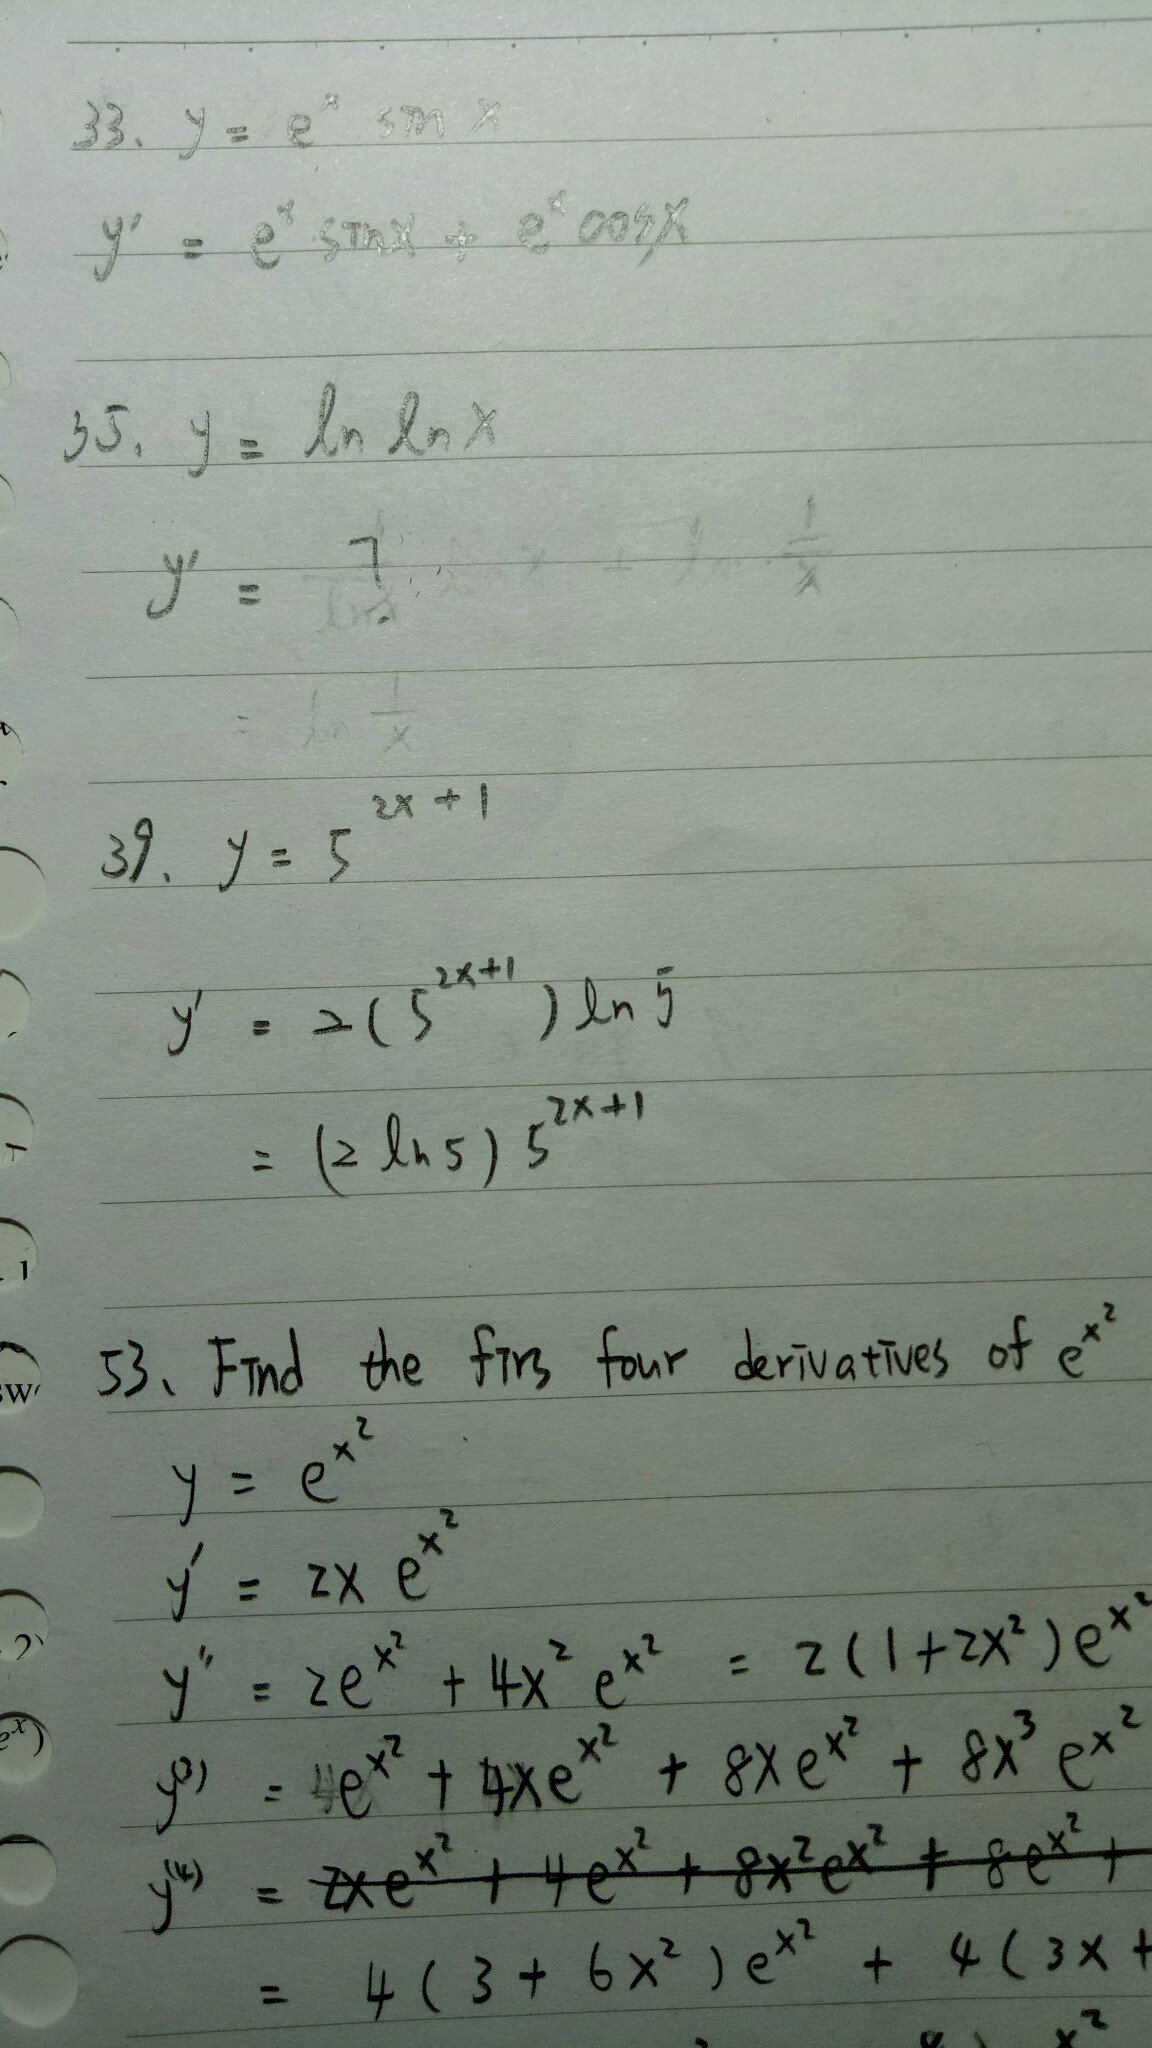 33. y = e^x sin x
y' = e^x sinx + e^x cosx
35. y = ln ln x
y' = ?
= ln 1/x
39. y = 5^2x+1
y' = 2(5^2x+1) ln 5
= (2 ln 5) 5^2x+1
53. Find the firs four derivatives of e^x^2
y = e^x^2
y' = 2x e^x^2
y'' = 2e^x^2 + 4x^2 e^x^2 = 2(1+2x^2)e^x^2
y^(3) = e^x^2 + 4xe^x^2 + 8xe^x^2 + 8x^3 e^x^2
y^(4) = 2xe^x^2 + 4e^x^2 + 8x^2e^x^2 + 8e^x^2 +
= 4(3+6x^2)e^x^2 + 4(3x+
x^2